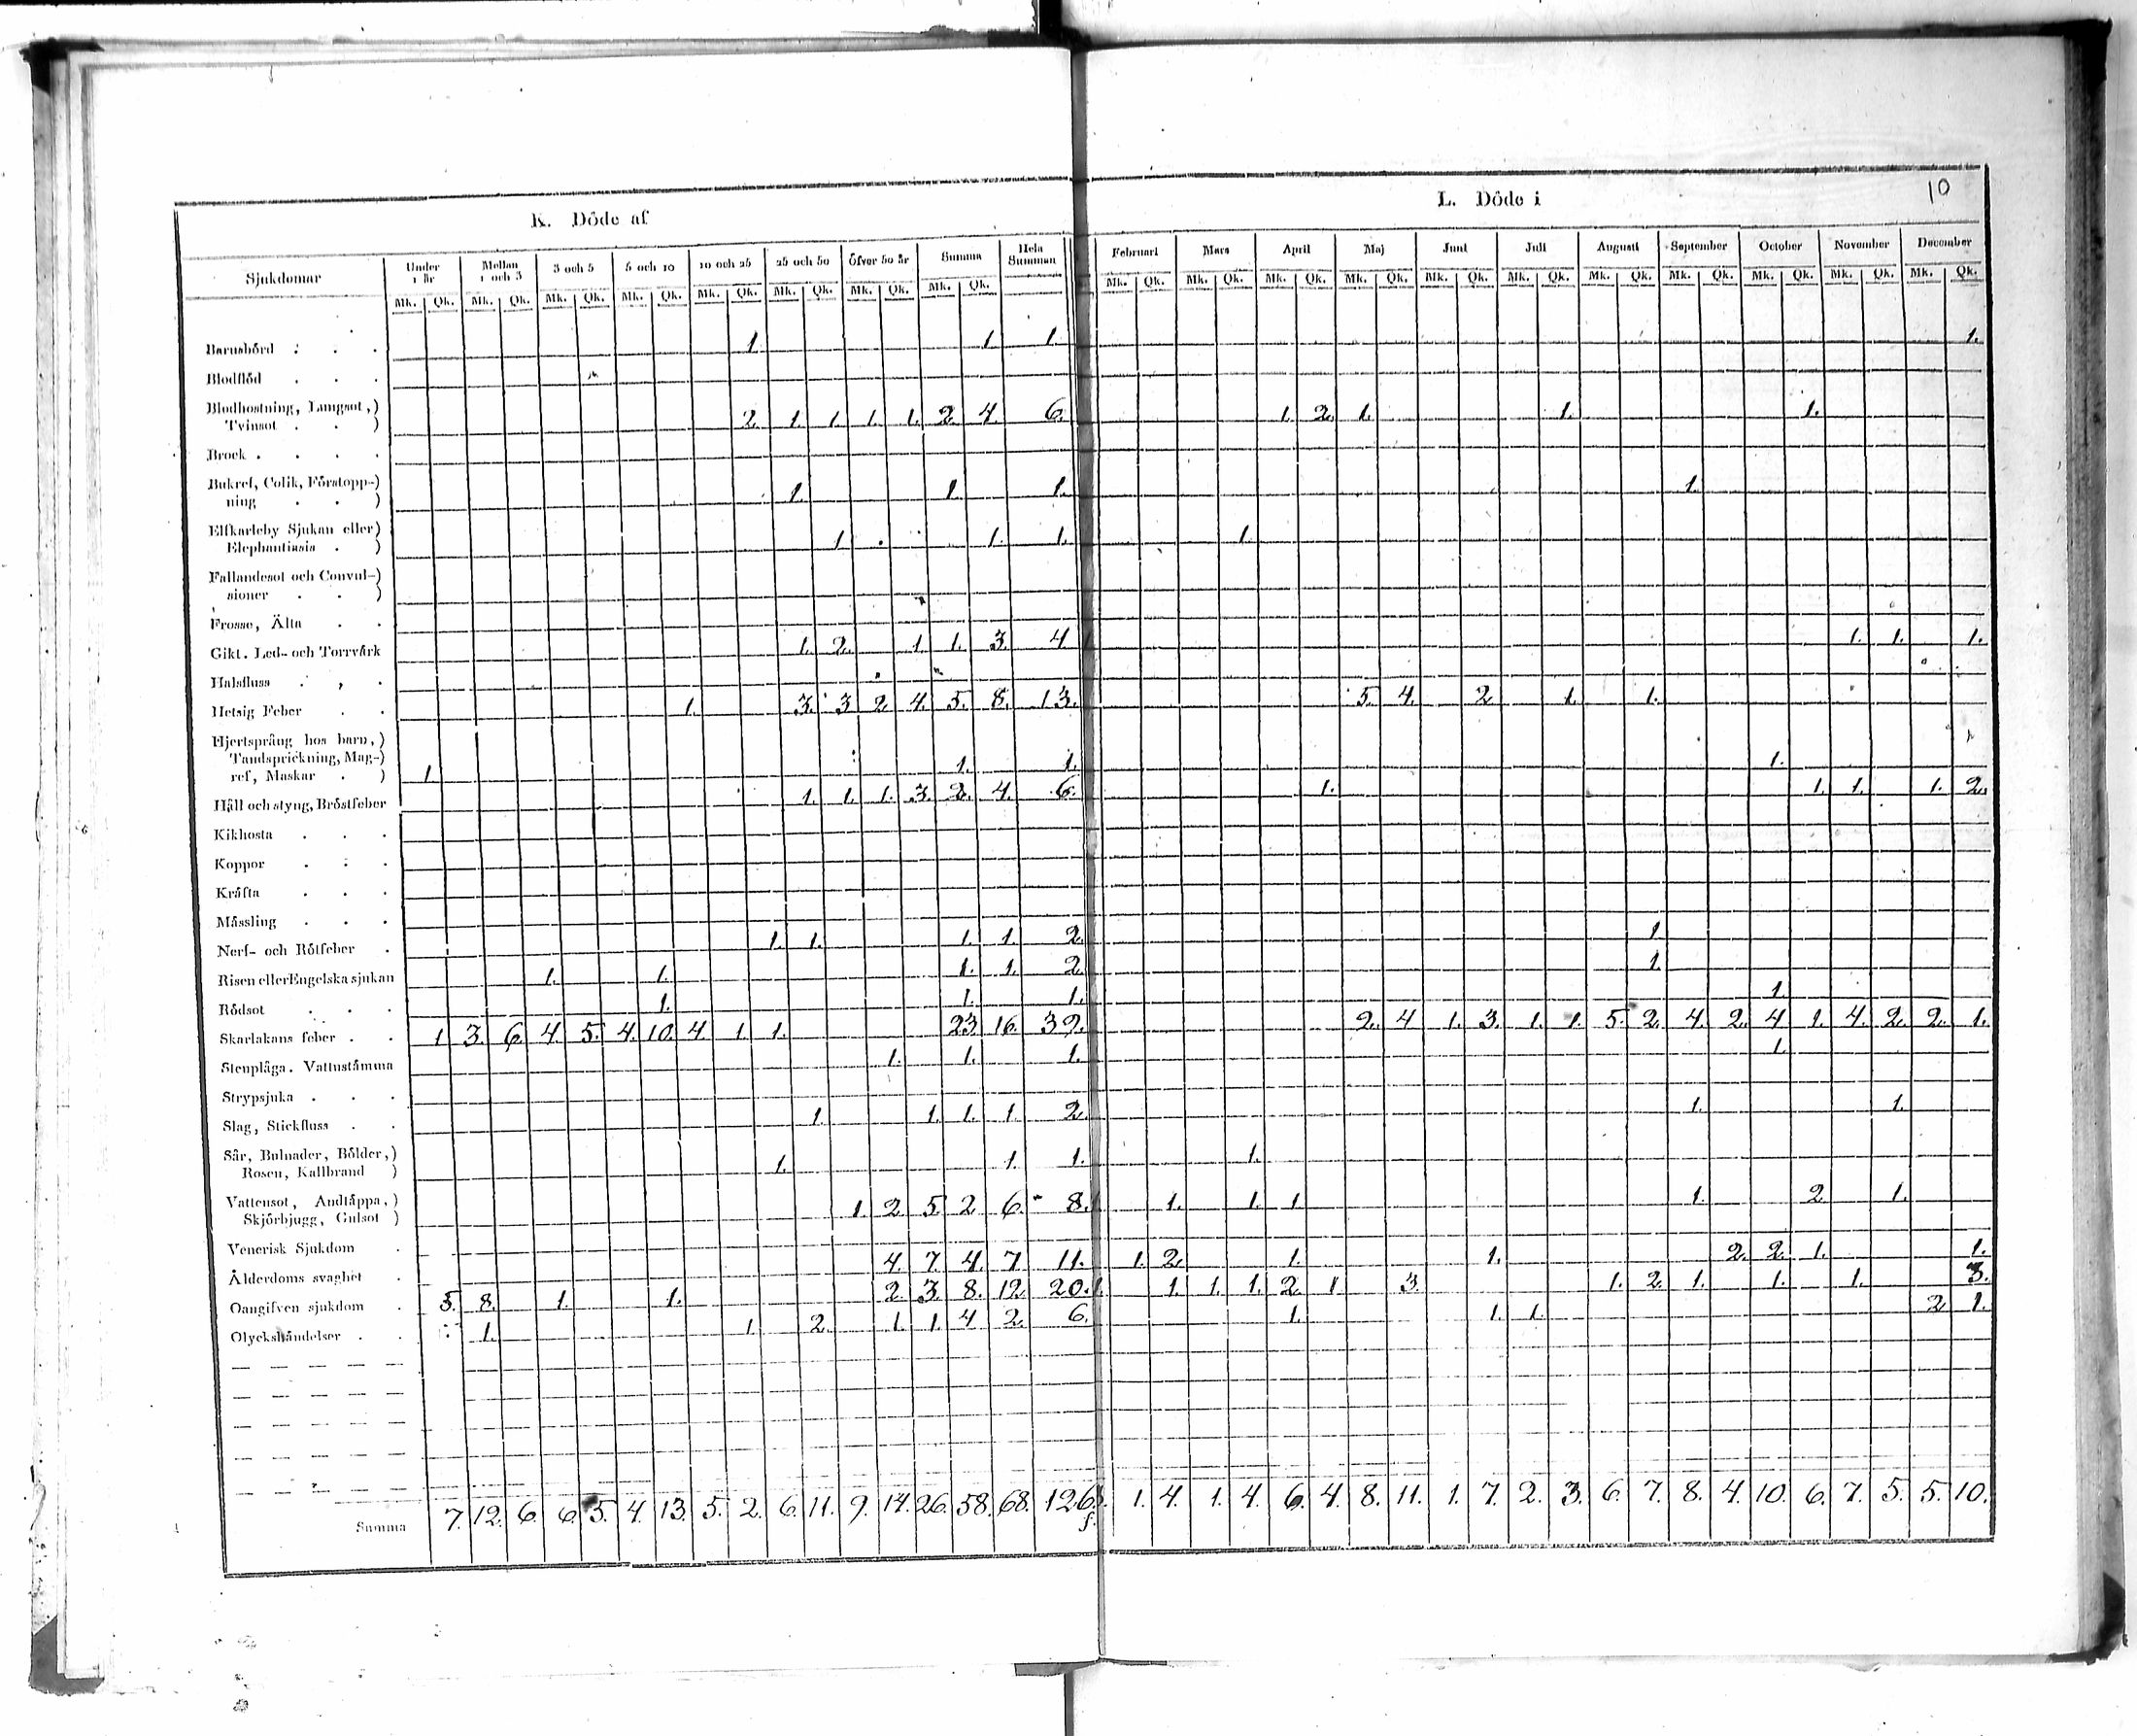 10
K. Döde af L. Döde i
Sjukdomar Under 1 år Mellan 1 och 3 3 och 5 5 och 10 10 och 25 25 och 50 Öfver 50 år Summa Hela Summan Februari Mars April Maj Juni Juli Augusti September October November December
Mk. Qk. Mk. Qk. Mk. Qk. Mk. Qk. Mk. Qk. Mk. Qk. Mk. Qk. Mk. Qk. Mk. Qk. Mk. Qk. Mk. Qk. Mk. Qk. Mk. Qk. Mk. Qk. Mk. Qk. Mk. Qk. Mk. Qk. Mk. Qk. Mk. Qk.
Barnsbörd . . . 1. 1. 1. 1.
Blodflöd . . .
Blodhostning, Lungsot,)
Tvinsot . . ) 2. 1. 1. 1. 1. 2. 4. 6. 1. 2. 1. 1. 1.
Brock . . . .
Bukref, Colik, Förstopp-)
ning . . ) 1. 1. 1. 1.
Elfkarleby Sjukan eller)
Elephantiasis . ) 1. 1. 1. 1.
Fallandesot och Convul-)
sioner . . )
Frosse, Älta . .
Gikt. Led- och Torrvärk 1. 2. 1. 1. 3. 4. 1. 1. 1.
Halsfluss . , .
Hetsig Feber . . 1. 3. 3 2. 4. 5. 8. 13. 5. 4. 2 1. 1.
Hjertsprång hos barn,)
Tandsprickning, Mag-)
ref, Maskar . ) 1. 1. 1. 1.
Håll och styng, Bröstfeber 1. 1. 1. 3. 2. 4. 6. 1. 1. 1. 1. 2.
Kikhosta . . .
Koppor . . .
Kräfta . . .
Mässling . . .
Nerf- och Rötfeber . 1. 1. 1. 1. 2. 1
Risen eller Engelska sjukan 1. 1. 1. 1. 2. 1
Rödsot . . . 1. 1. 1. 1.
Skarlakans feber . . 1 3. 6. 4. 5. 4. 10. 4. 1. 1. 23 16. 39. 2. 4 1. 3. 1. 1. 5. 2. 4. 2. 4 1. 4. 2. 2. 1.
Stenplåga. Vattustämma 1. 1. 1. 1.
Strypsjuka . . .
Slag, Stickfluss . . 1. 1. 1. 1. 2. 1. 1.
Sår, Bulnader, Bölder,)
Rosen, Kallbrand ) 1. 1. 1. 1.
Vattensot, Andtäppa,)
Skjörbjugg, Gulsot ) 1. 2. 5. 2 6. 8. 1. 1. 1. 1. 2. 1.
Venerisk Sjukdom .
Ålderdoms svaghet . 4. 7. 4. 7 11. 1. 2. 1. 1. 2. 2. 1. 1.
Oangifven sjukdom . 5. 8. 1. 1. 2. 3. 8. 12. 20. 1. 1. 1. 1. 2. 1 3. 1. 2. 1. 1. 1. 3.
Olyckshändelser . . 1. 1. 2. 1. 1. 4 2. 6. 1. 1. 1. 2. 1.
Summa 7. 12. 6. 6. 5. 4. 13. 5. 2. 6. 11. 9. 14. 26. 58. 68. 126. 1. 4. 1. 4. 6. 4. 8. 11. 1. 7. 2. 3. 6. 7. 8. 4. 10. 6. 7. 5. 5. 10.